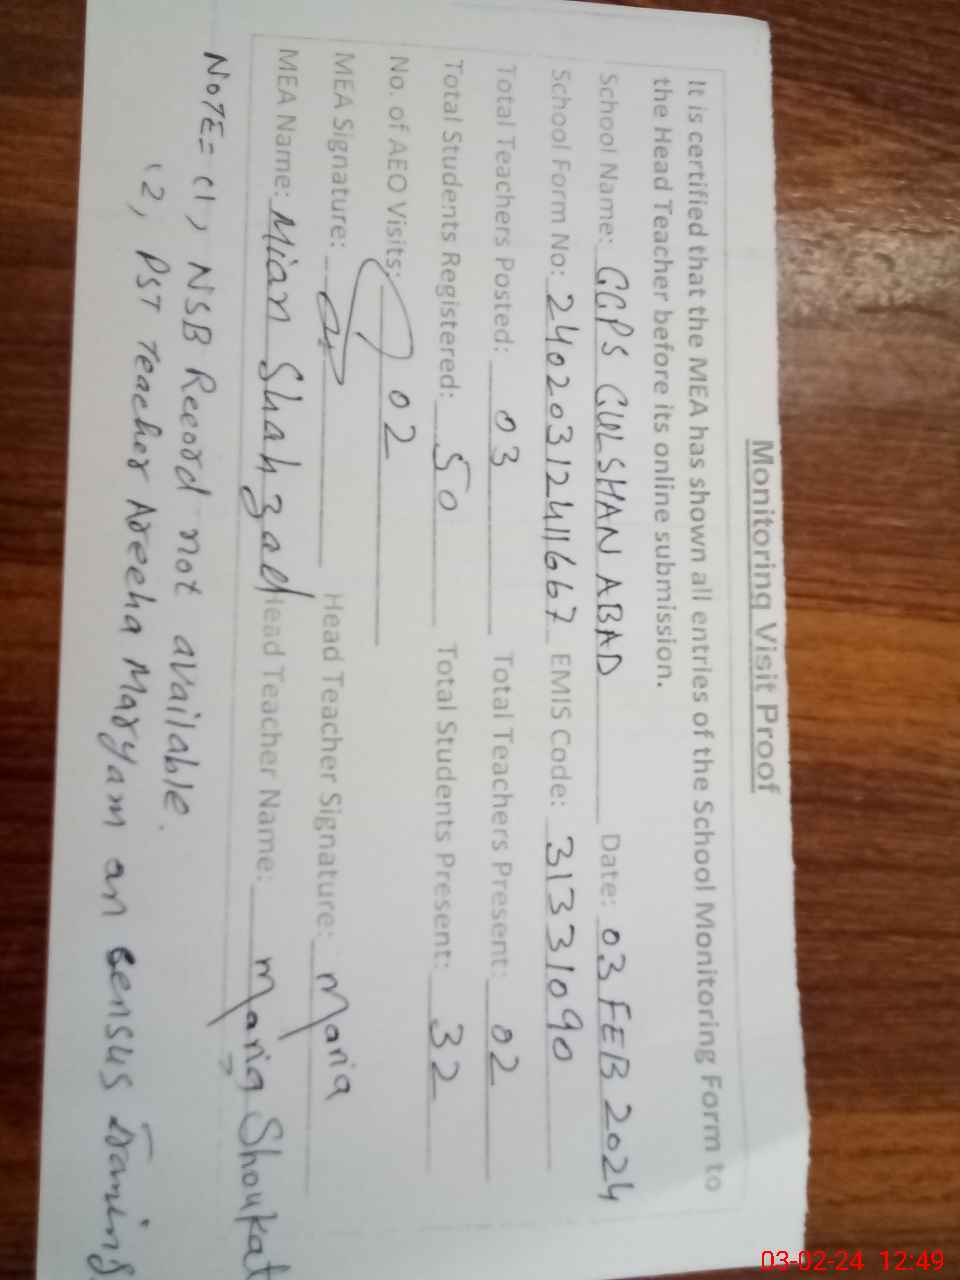 Monitoring Visit Proof
It is certified that the MEA has shown all entries of the School Monitoring Form to
the Head Teacher before its online submission.
School Name: GGPS GULSHAN ABAD Date: 03 FEB 2024
School Form No: 24020312411667 EMIS Code: 31331090
Total Teachers Posted: 03 Total Teachers Present: 02
Total Students Registered: 50 Total Students Present: 32
No. of AEO Visits: 02
MEA Signature: Head Teacher Signature: Maria
MEA Name: Mian Shahzad Head Teacher Name: Maria Shoukat
NOTE= (1, NSB Record not available.
(2, PST Teacher Areeha Maryam on census training
03-02-24 12:49